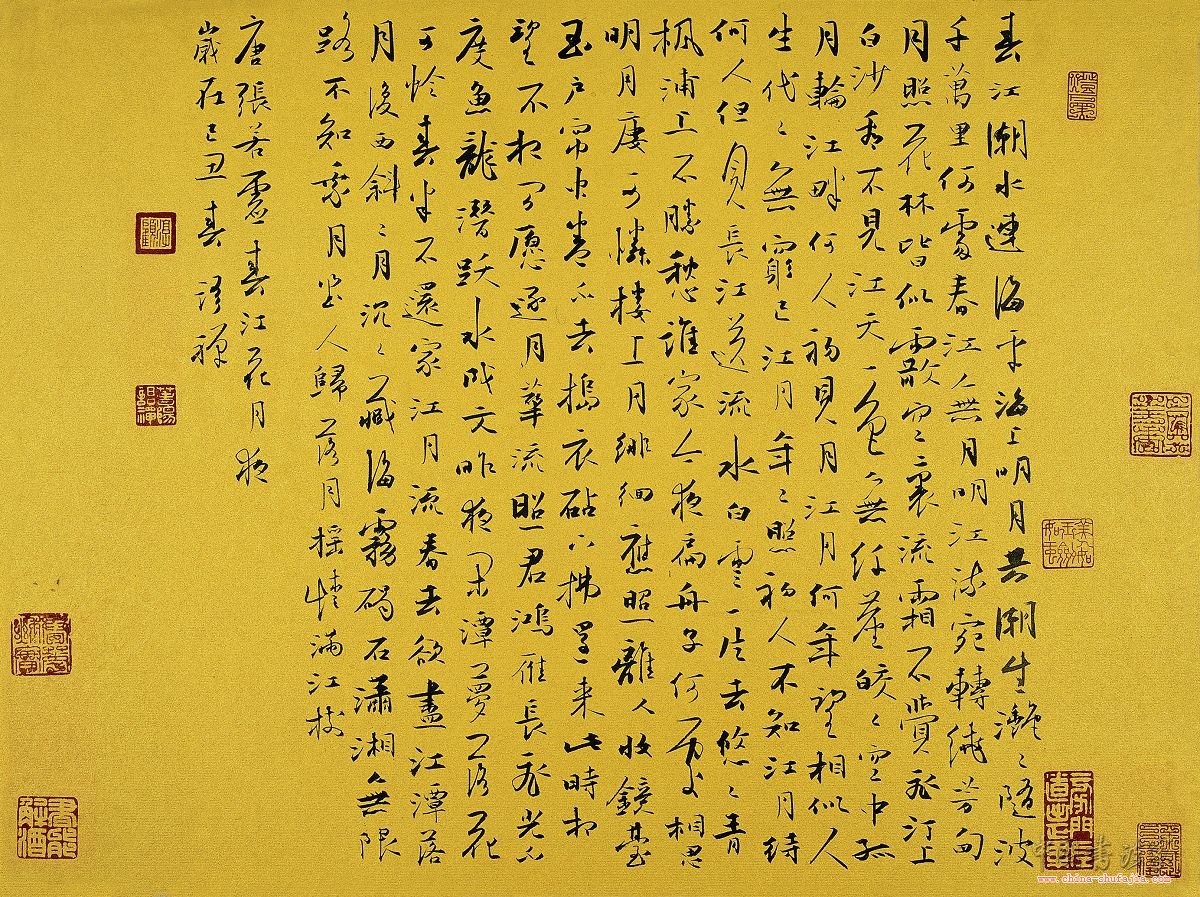 春江潮水連海平海上明月共潮生灩〻隨波
千萬里何處春江無月明江流宛轉繞芳甸
月照花林皆似霰空裏流霜不覺飛汀上
白沙看不見江天一色無纖塵皎〻空中孤
月輪江畔何人初見月江月何年望相似人
生代〻無窮已江月年〻照初人不知江月待
何人但見長江送流水白雲一片去悠〻青
楓浦上不勝愁誰家今夜扁舟子何處相思
明月廔可憐樓上月徘徊應照離人妝鏡臺
玉戶簾中卷不去搗衣砧上拂還來此時相
望不相聞願逐月華流照君鴻雁長飛光不
度魚龍潛躍水成文昨夜閑潭夢落花
可憐春半不還家江月流春去欲盡江潭落
月復西斜〻月沉〻藏海霧碣石瀟湘無限
路不知乘月幾人歸落月搖情滿江樹
唐張若虛春江花月夜
歲在己丑春
www.china-shufajia.com